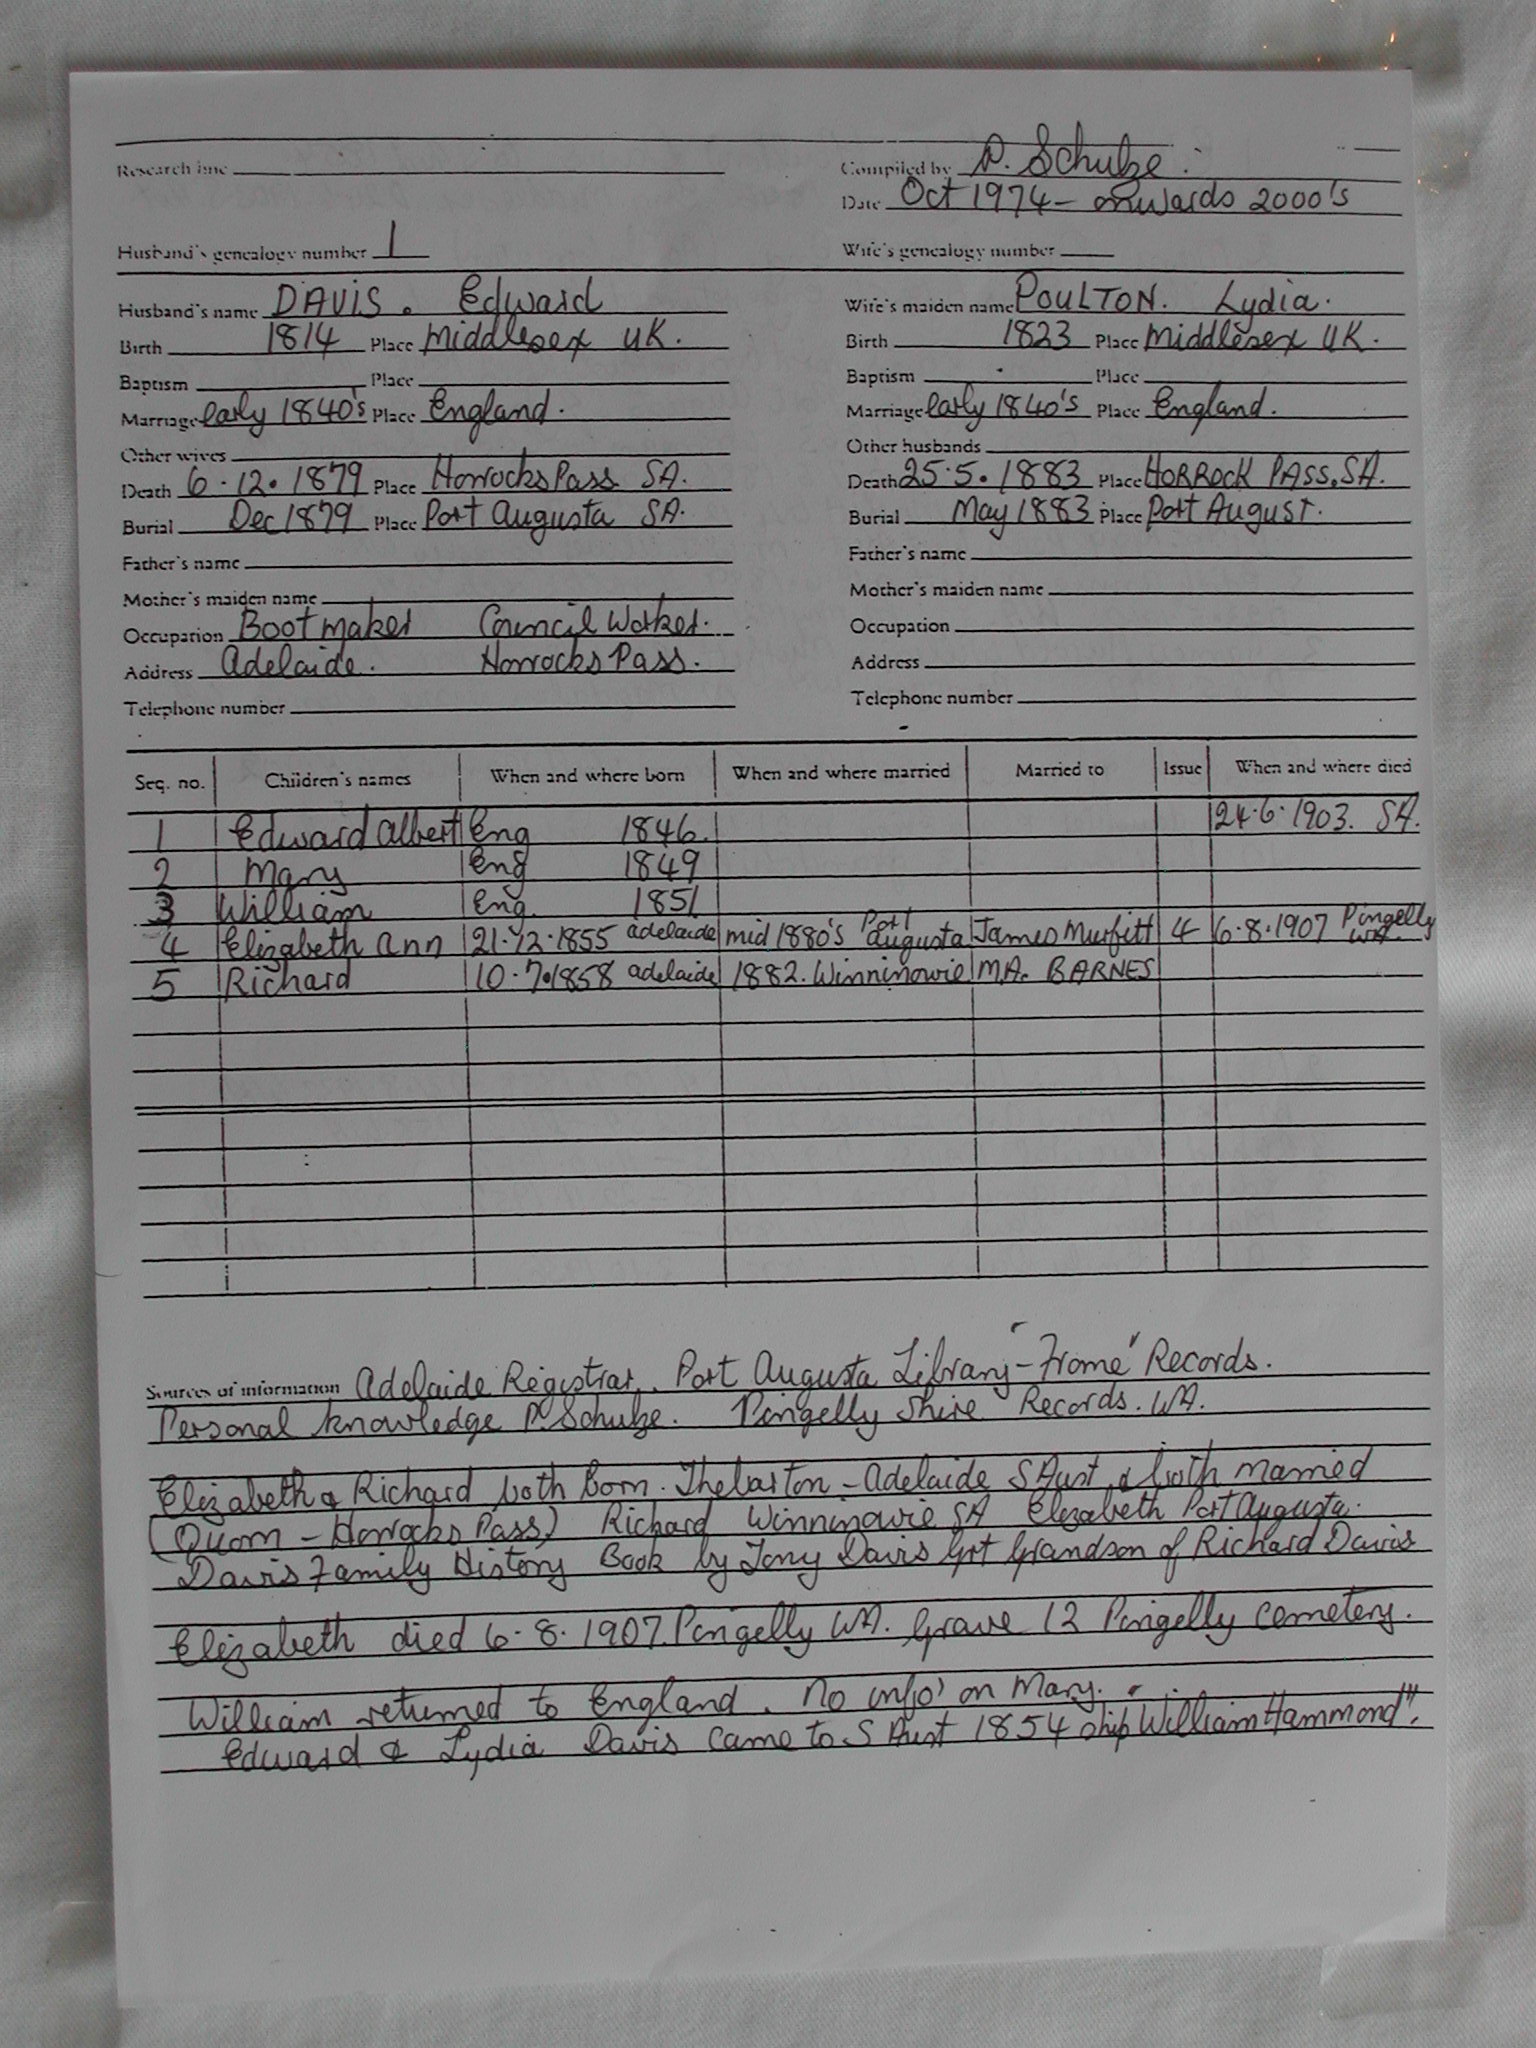 Research line
Compiled by D. Schulze.
Date Oct 1974 - onwards 2000's
Husband's genealogy number 1
Wife's genealogy number
Husband's name DAVIS. Edward
Wife's maiden name POULTON. Lydia.
Birth 1814 Place Middlesex UK.
Birth 1823 Place Middlesex UK.
Baptism Place
Baptism Place
Marriage early 1840's Place England.
Marriage early 1840's Place England.
Other wives
Other husbands
Death 6.12.1879 Place Horrocks Pass SA.
Death 25.5.1883 Place HORROCK PASS, SA.
Burial Dec 1879 Place Port Augusta SA.
Burial May 1883 Place Port August.
Father's name
Father's name
Mother's maiden name
Mother's maiden name
Occupation Bootmaker Council Worker.
Occupation
Address Adelaide. Horrocks Pass.
Address
Telephone number
Telephone number
Seq. no. Children's names When and where born When and where married Married to Issue When and where died
1 Edward Albert Eng 1846. 24.6.1903. SA.
2 Mary Eng 1849
3 William Eng. 1851
4 Elizabeth Ann 21.12.1855 Adelaide mid 1880's Port Augusta James Murfitt 4 6.8.1907 Pingelly WA.
5 Richard 10.7.1858 Adelaide 1882. Winninowie M.A. BARNES
Sources of information Adelaide Registrar. Port Augusta Library - "Frome" Records.
Personal knowledge D. Schulze. Pingelly Shire Records. WA.
Elizabeth & Richard both born. Thebarton - Adelaide S Aust & both married
(Quorn - Horrocks Pass) Richard Winninowie SA Elizabeth Port Augusta.
Davis Family History Book by Tony Davis Grt Grandson of Richard Davis
Elizabeth died 6.8.1907. Pingelly WA. Grave 12 Pingelly Cemetery.
William returned to England. No info' on Mary.
Edward & Lydia Davis came to S Aust 1854 ship "William Hammond".